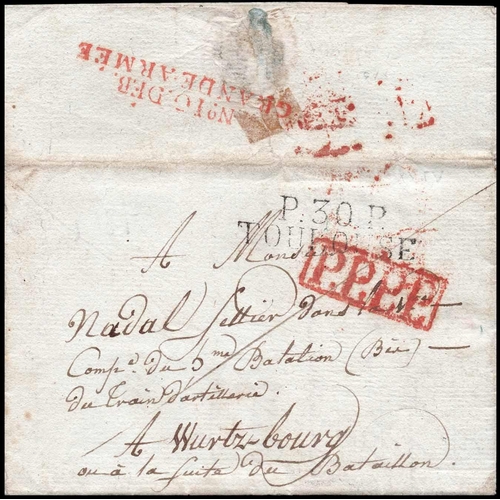 No. 16. DÉB.
GRANDE ARMÉE
P.30.P.
TOULOUSE
A Mons
P.P.P.P.
Nadal Sellier dans
Comp.e du 3me Batalion (Bis)
du Train d'artillerie
A Wurtz-bourg
ou à la suite du Bataillon.